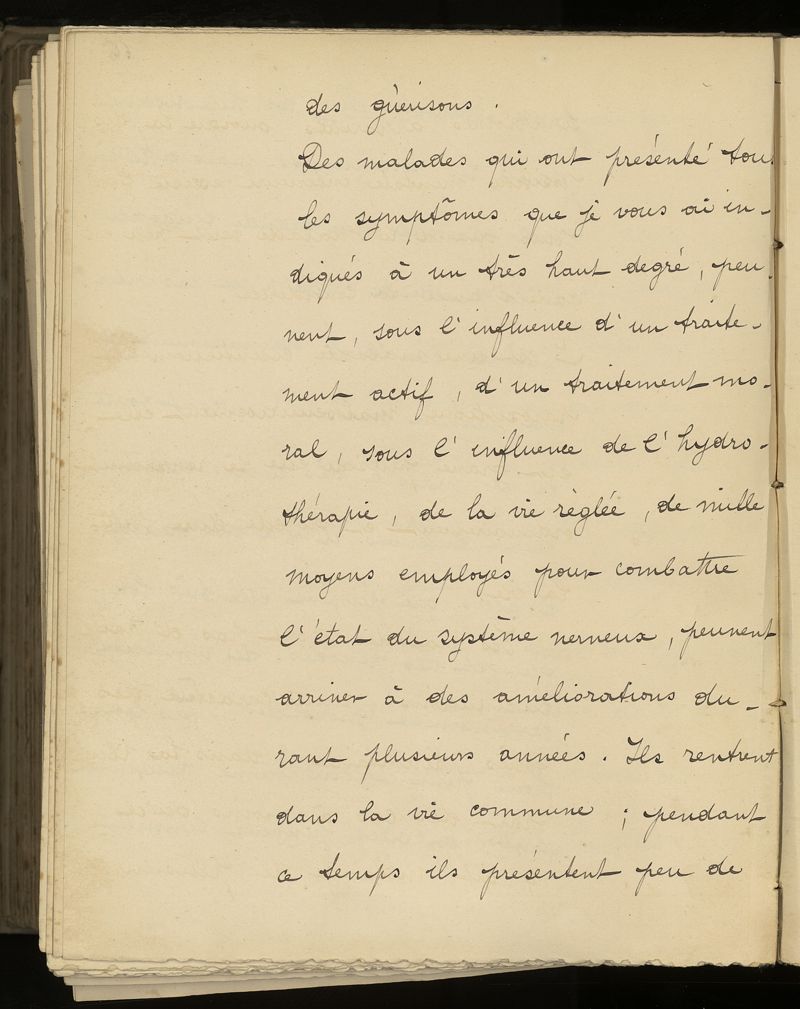 des guérisons.
Des malades qui ont présenté tous
les symptômes que je vous ai in-
diqués à un très haut degré, peu-
vent, sous l'influence d'un traite-
ment actif, d'un traitement mo-
ral, sous l'influence de l'hydro-
thérapie, de la vie règlée, de mille
moyens employés pour combattre
l'état du système nerveux, peuvent
arriver à des améliorations du-
rant plusieurs années. Ils rentrent
dans la vie commune; pendant
ce temps ils présentent peu de